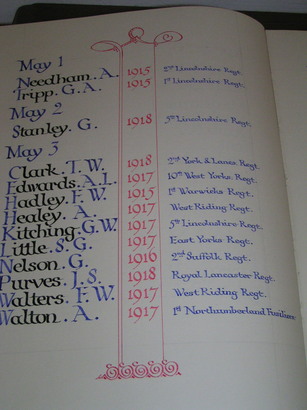 May 1
Needham. A. 1915 2nd Lincolnshire Regt.
Tripp. G. A. 1915 1st Lincolnshire Regt.
May 2
Stanley. G. 1918 5th Lincolnshire Regt.
May 3
Clark. T. W. 1918 2nd York & Lancs. Regt.
Edwards. A. L. 1917 10th West Yorks. Regt.
Hadley. F. W. 1915 1st Warwicks Regt.
Healey. A. 1917 West Riding Regt.
Kitching. G. W. 1917 5th Lincolnshire Regt.
Little. S. G. 1917 East Yorks Regt.
Nelson. G. 1916 2nd Suffolk Regt.
Purves. J. S. 1918 Royal Lancaster Regt.
Walters. F. W. 1917 West Riding Regt.
Walton. A. 1917 1st Northumberland Fusiliers